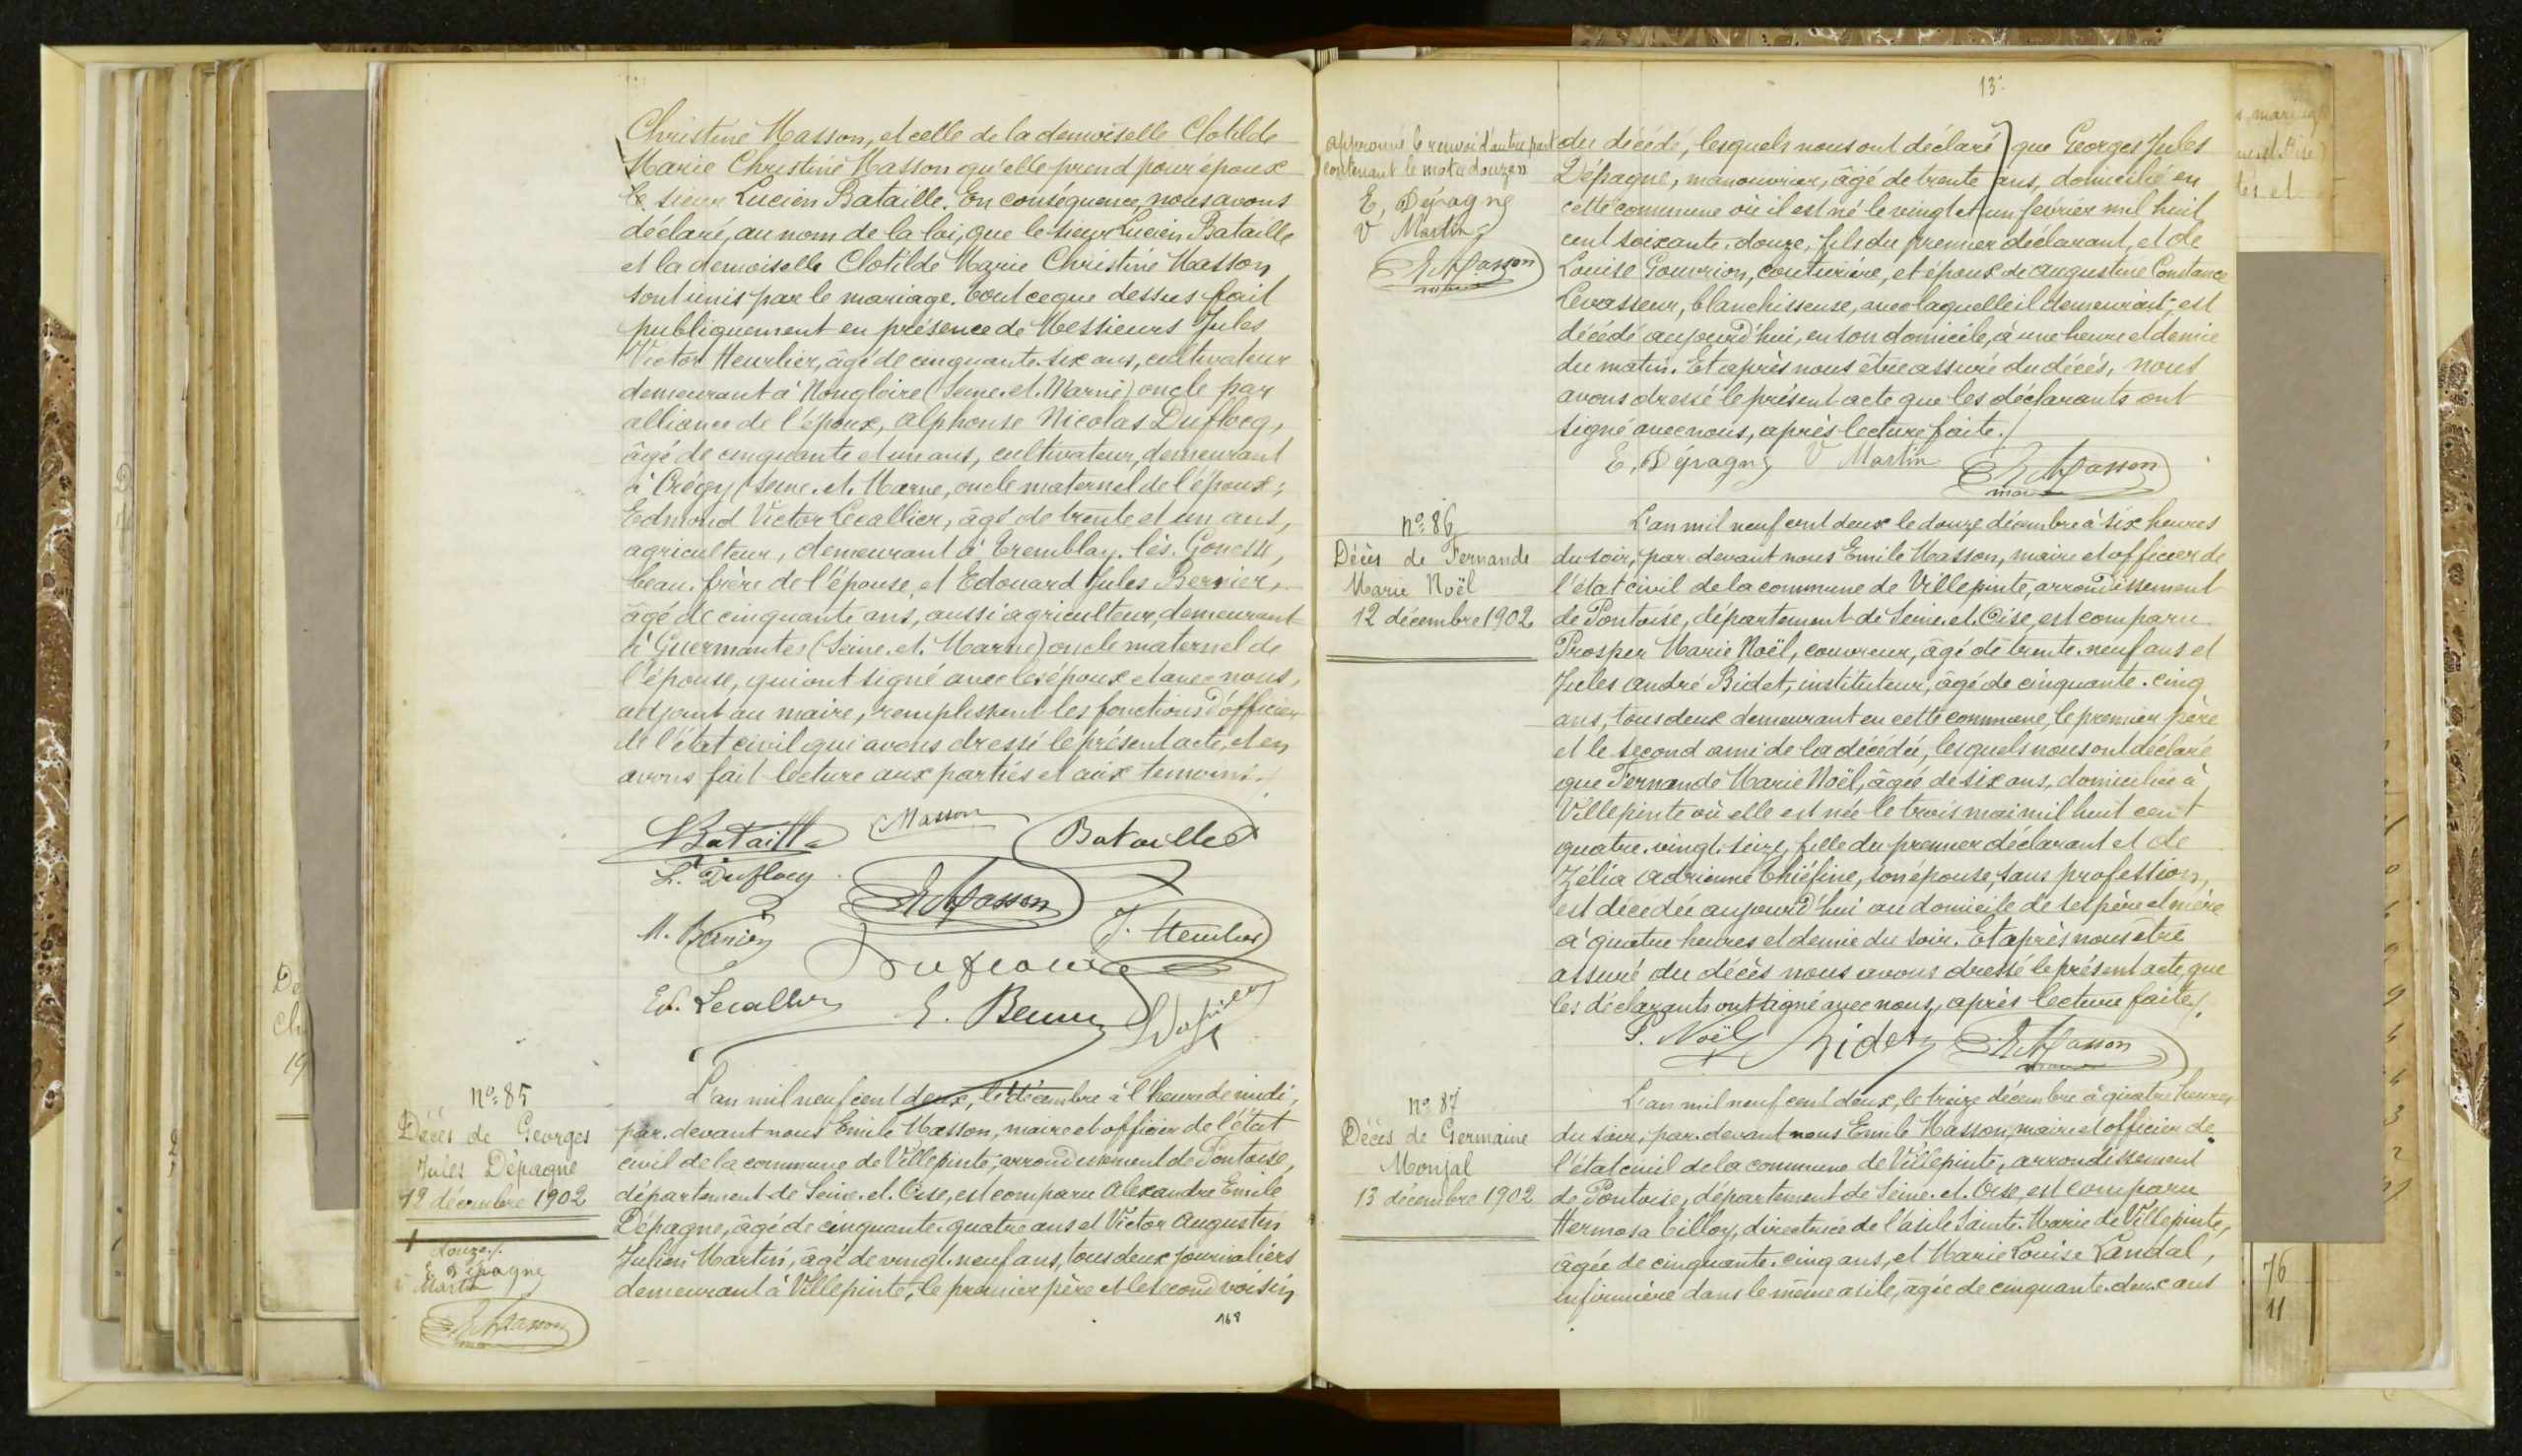 Christine Masson, et celle de la demoiselle Clotilde
Marie Christine Masson qu'elle prend pour époux
le sieur Lucien Bataille. En conséquence, nous avons
déclaré, au nom de la loi, que le sieur Lucien Bataille
et la demoiselle Clotilde Marie Christine Masson
sont unis par le mariage. Tout ce que dessus fait
publiquement en présence de Messieurs Jules
Victor Heurlier, âgé de cinquante-six ans, cultivateur
demeurant à (Seine-et-Marne) oncle par
alliance de l'époux, Alphonse Nicolas Duflocq,
âgé de cinquante et un ans, cultivateur, demeurant
à Crégy (Seine-et-Marne, oncle maternel de l'époux;
Edmond Victor Lecallier, âgé de trente et un ans,
agriculteur, demeurant à Tremblay-lès-Gonesse,
beau-frère de l'épouse, et Edouard Jules Bernier,
âgé de cinquante ans, aussi agriculteur, demeurant
à Guermantes (Seine-et-Marne) oncle maternel de
l'épouse, qui ont signé avec les époux et avec nous,
adjoint au maire, remplissant les fonctions d'officier
de l'état civil qui avons dressé le présent acte, et en
avons fait lecture aux parties et aux temoins./.
Bataille CMasson Bataille
L. Duflocq
E Masson
M. Bernier J. Heurlier
Ed. Lecallier E. Bernier
N° 85
Décès de Georges
Jules Dépagne
12 décembre 1902
L'an mil neuf cent deux, le décembre à l'heure de midi,
par-devant nous Emile Masson, maire et officier de l'état
civil de la commune de Villepinte, arrondissement de Pontoise,
département de Seine-et-Oise, est comparu Alexandre Emile
Dépagne, âgé de cinquante-quatre ans et Victor Augustin
Julien Martin, âgé de vingt-neuf ans, tous deux journaliers
demeurant à Villepinte, le premier père et le second voisin
douze./.
E Dépagne
V Martin
E Masson
maire
168
13.
approuvé le renvoi d'autre part
contenant le mot "douze"
E. Dépagne
V Martin
E Masson
maire
du décédé, lesquels nous ont déclaré que Georges Jules
Dépagne, manouvrier, âgé de trente ans, domicilié en
cette commune où il est né le vingt et un février mil huit
cent soixante-douze, fils du premier déclarant, et de
Louise Gouvrion, couturière, et époux de Augustine Constance
Levasseur, blanchisseuse, avec laquelle il demeurait, est
décédé aujourd'hui, en son domicile, à une heure et demie
du matin. Et après nous être assuré du décès, nous
avons dressé le présent acte que les déclarants ont
signé avec nous, après lecture faite./.
E. Dépagne V Martin E Masson
maire
N° 86
Décès de Fernande
Marie Noël
12 décembre 1902
L'an mil neuf cent deux le douze décembre à six heures
du soir, par-devant nous Emile Masson, maire et officier de
l'état civil de la commune de Villepinte, arrondissement
de Pontoise, département de Seine-et-Oise, est comparu
Prosper Marie Noël, couvreur, âgé de trente-neuf ans et
Jules André Bidet, instituteur, âgé de cinquante-cinq
ans, tous deux demeurant en cette commune, le premier père
et le second ami de la décédée, lesquels nous ont déclaré
que Fernande Marie Noël, âgée de six ans, domiciliée à
Villepinte où elle est née le trois mai mil huit cent
quatre-vingt-seize, fille du premier déclarant et de
Zélia Adrienne Chiéfine, son épouse, sans profession,
est décédée aujourd'hui au domicile de ses père et mère
à quatre heures et demie du soir. Et après nous être
assuré du décès nous avons dressé le présent acte, que
les déclarants ont signé avec nous, après lecture faite./.
P. Noël Bidet E Masson
maire
N° 87
Décès de Germaine
Monjal
13 décembre 1902
L'an mil neuf cent deux, le treize décembre à quatre heures
du soir, par-devant nous Emile Masson, maire et officier de
l'état civil de la commune de Villepinte, arrondissement
de Pontoise, département de Seine-et-Oise, est comparu
Hermosa Tilloy, directrice de l'asile Sainte-Marie de Villepinte,
âgée de cinquante-cinq ans, et Marie Louise Landal,
infirmière dans le même asile, âgée de cinquante-deux ans
76
11